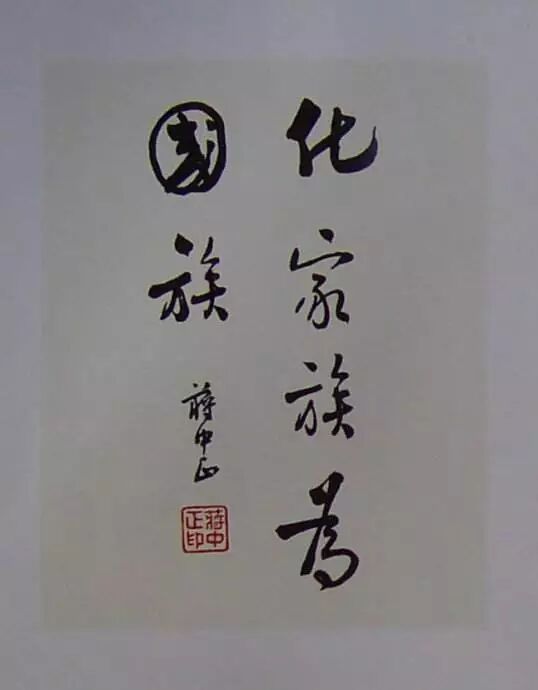 化家族為
國族
蔣中正
蔣中正印